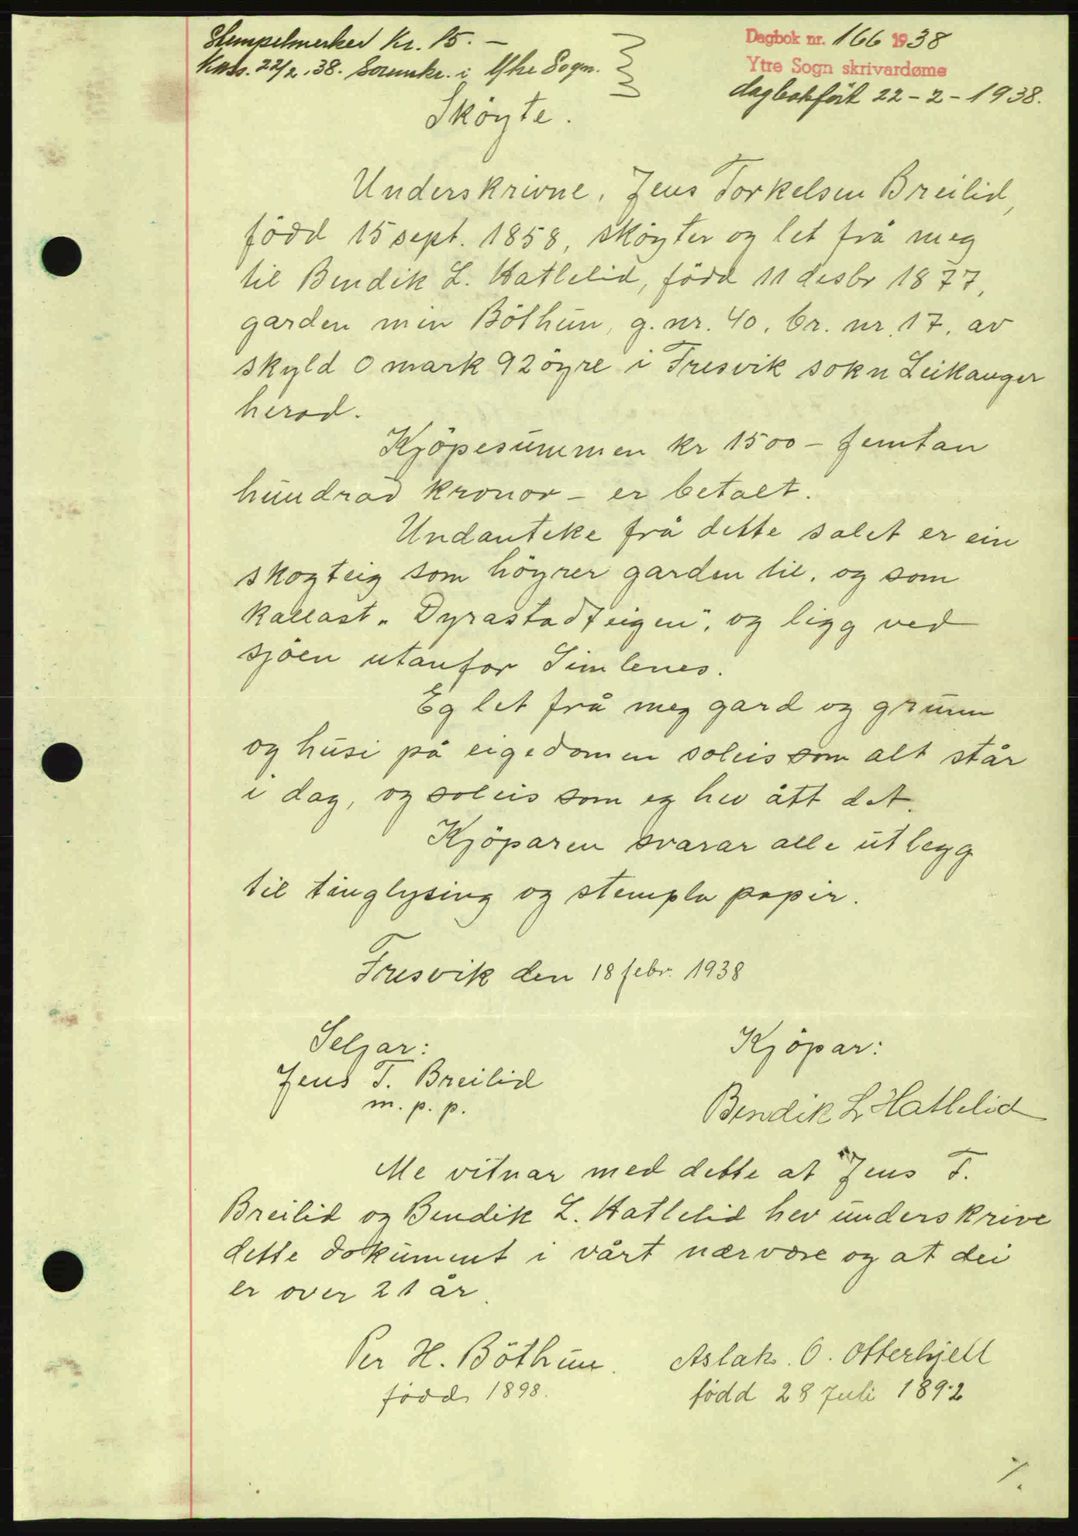 Stempelmerker Kr. 15.-
Kass. 22/2.38. Sorenskr. i Ytre Sogn.
Dagbok nr. 166 1938
Ytre Sogn skrivardøme
dagbokført 22-2-1938.
Sköyte.
Underskrivne, Jens Torkelsen Breilid,
född 15 sept. 1858, sköyter og let frå meg
til Bendik L. Hatlelid, född 11 desbr 1877,
garden min Böthun, g.nr. 40, br. nr. 17, av
skyld 0 mark 92 öyre i Fresvik sokn Leikanger
herad.
Kjöpesummen kr 1500 - femtan
hundrad kronor - er betalt.
Undanteke frå dette salet er ein
skogteig som höyrer garden til, og som
kallast „Dyrastadteigen", og ligg ved
sjöen utanfor Simlenes.
Eg let frå meg gard og grunn
og husi på eigedomen soleis som alt står
i dag, og soleis som eg hev ått det.
Kjöparen svarar alle utlegg
til tinglysing og stempla papir.
Fresvik den 18 febr. 1938
Seljar:
Jens T. Breilid
m. p. p.
Kjöpar:
Bendik L Hatlelid
Me vitnar med dette at Jens T.
Breilid og Bendik L. Hatlelid hev underskrive
dette dokument i vårt nærvære og at dei
er over 21 år.
Per H. Böthun.
född 1898.
Aslak. O. Otterhjell
född 28 Juli 1892
%